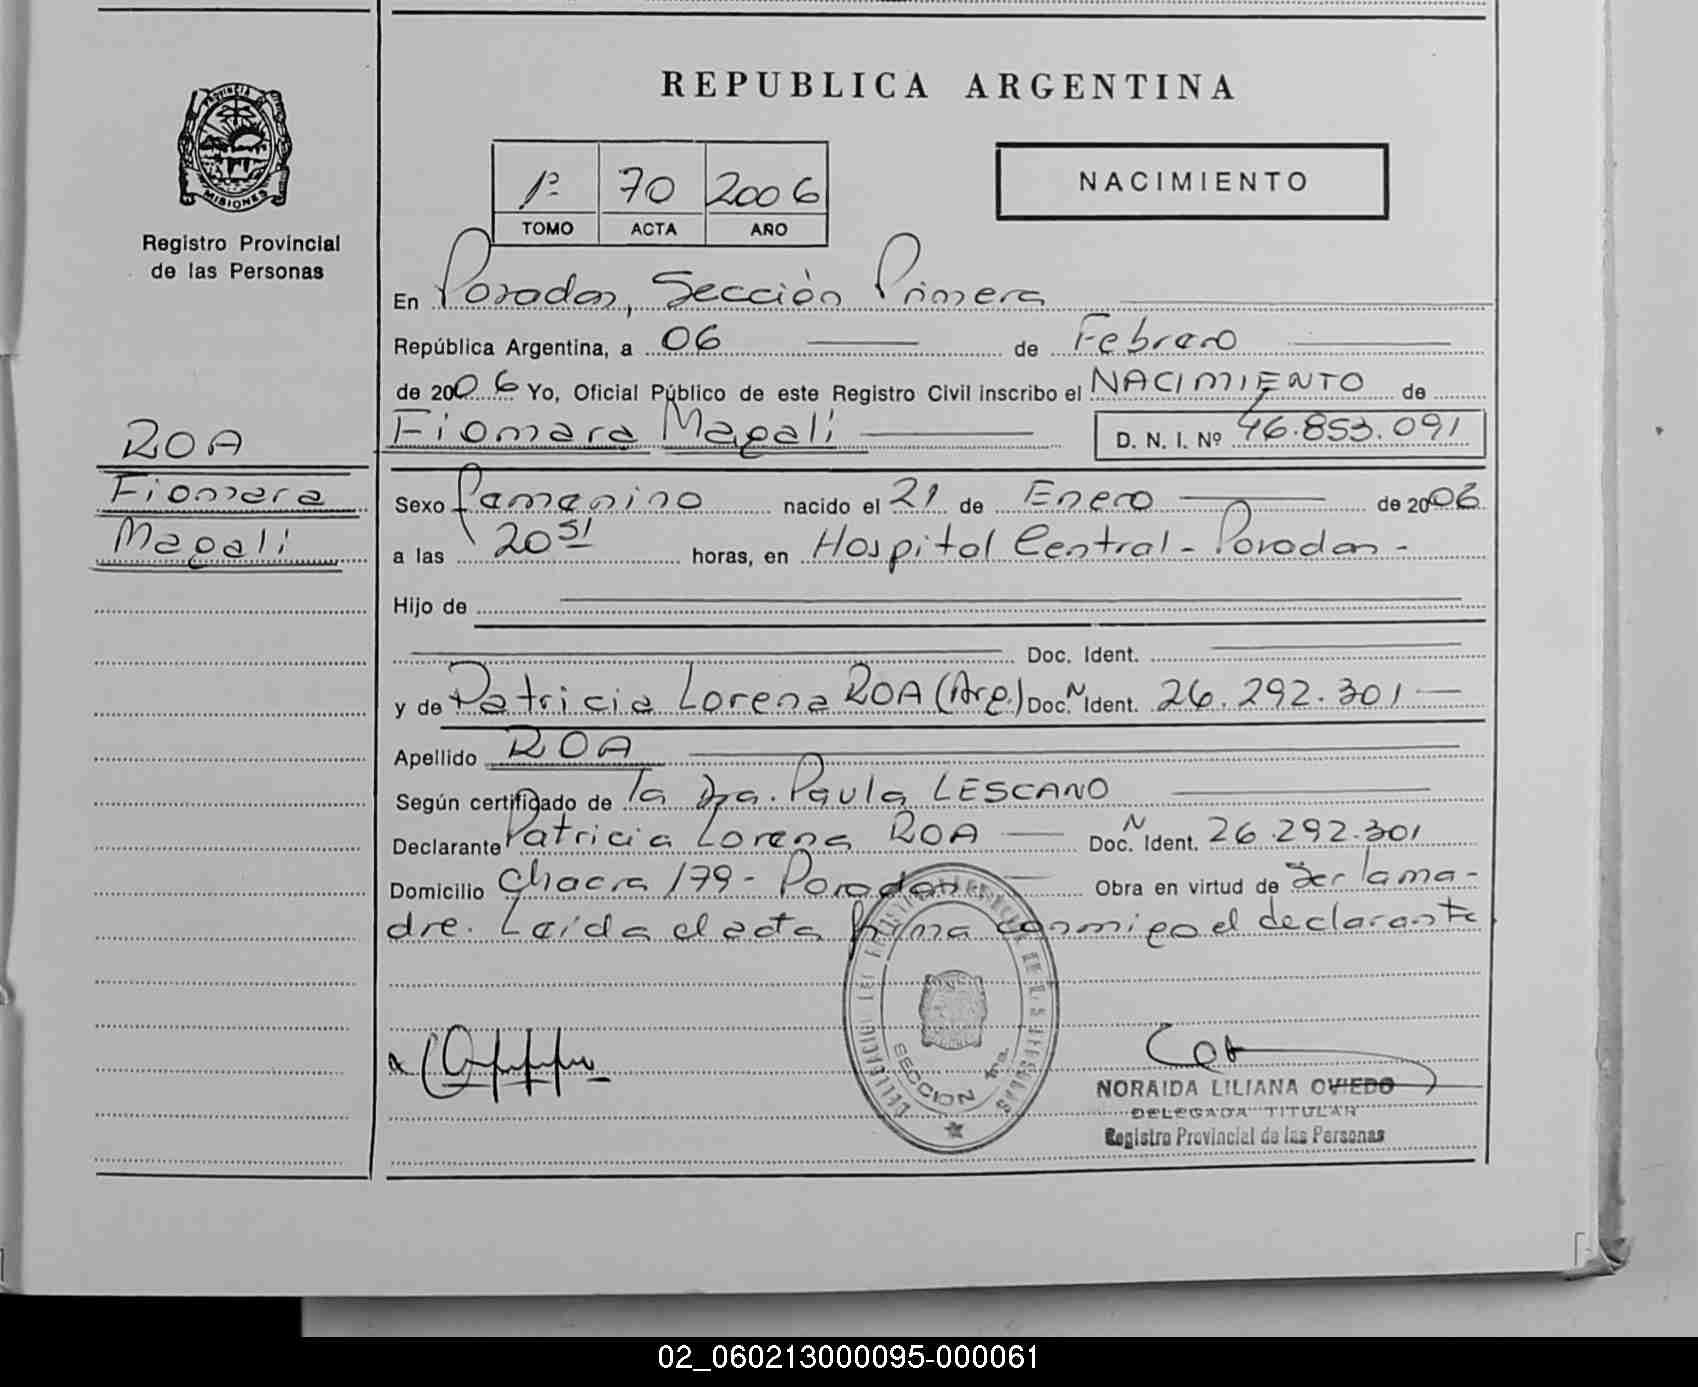 PROVINCIA DE
MISIONES
Registro Provincial
de las Personas
ROA
Fiomara
Magali
REPUBLICA ARGENTINA
1º 70 2006
TOMO ACTA AÑO
NACIMIENTO
En Posadas, Sección Primera
República Argentina, a 06 de Febrero
de 2006 Yo, Oficial Público de este Registro Civil inscribo el NACIMIENTO de
Fiomara Magali D. N. I. Nº 46.853.091
Sexo Famenino nacido el 21 de Enero de 2006
a las 20 51 horas, en Hospital Central - Posadas -
Hijo de
Doc. Ident.
y de Patricia Lorena ROA (Arg.) Doc. N Ident. 26.292.301
Apellido ROA
Según certificado de la Dra. Paula LESCANO
Declarante Patricia Lorena ROA Doc. N Ident. 26.292.301
Domicilio Chacra 179 - Posadas Obra en virtud de Ser la ma-
dre. Leída el acta firma conmigo el declarante
SECCION 1ra.
NORAIDA LILIANA OVIEDO
DELEGADA TITULAR
Registro Provincial de las Personas
02_060213000095-000061